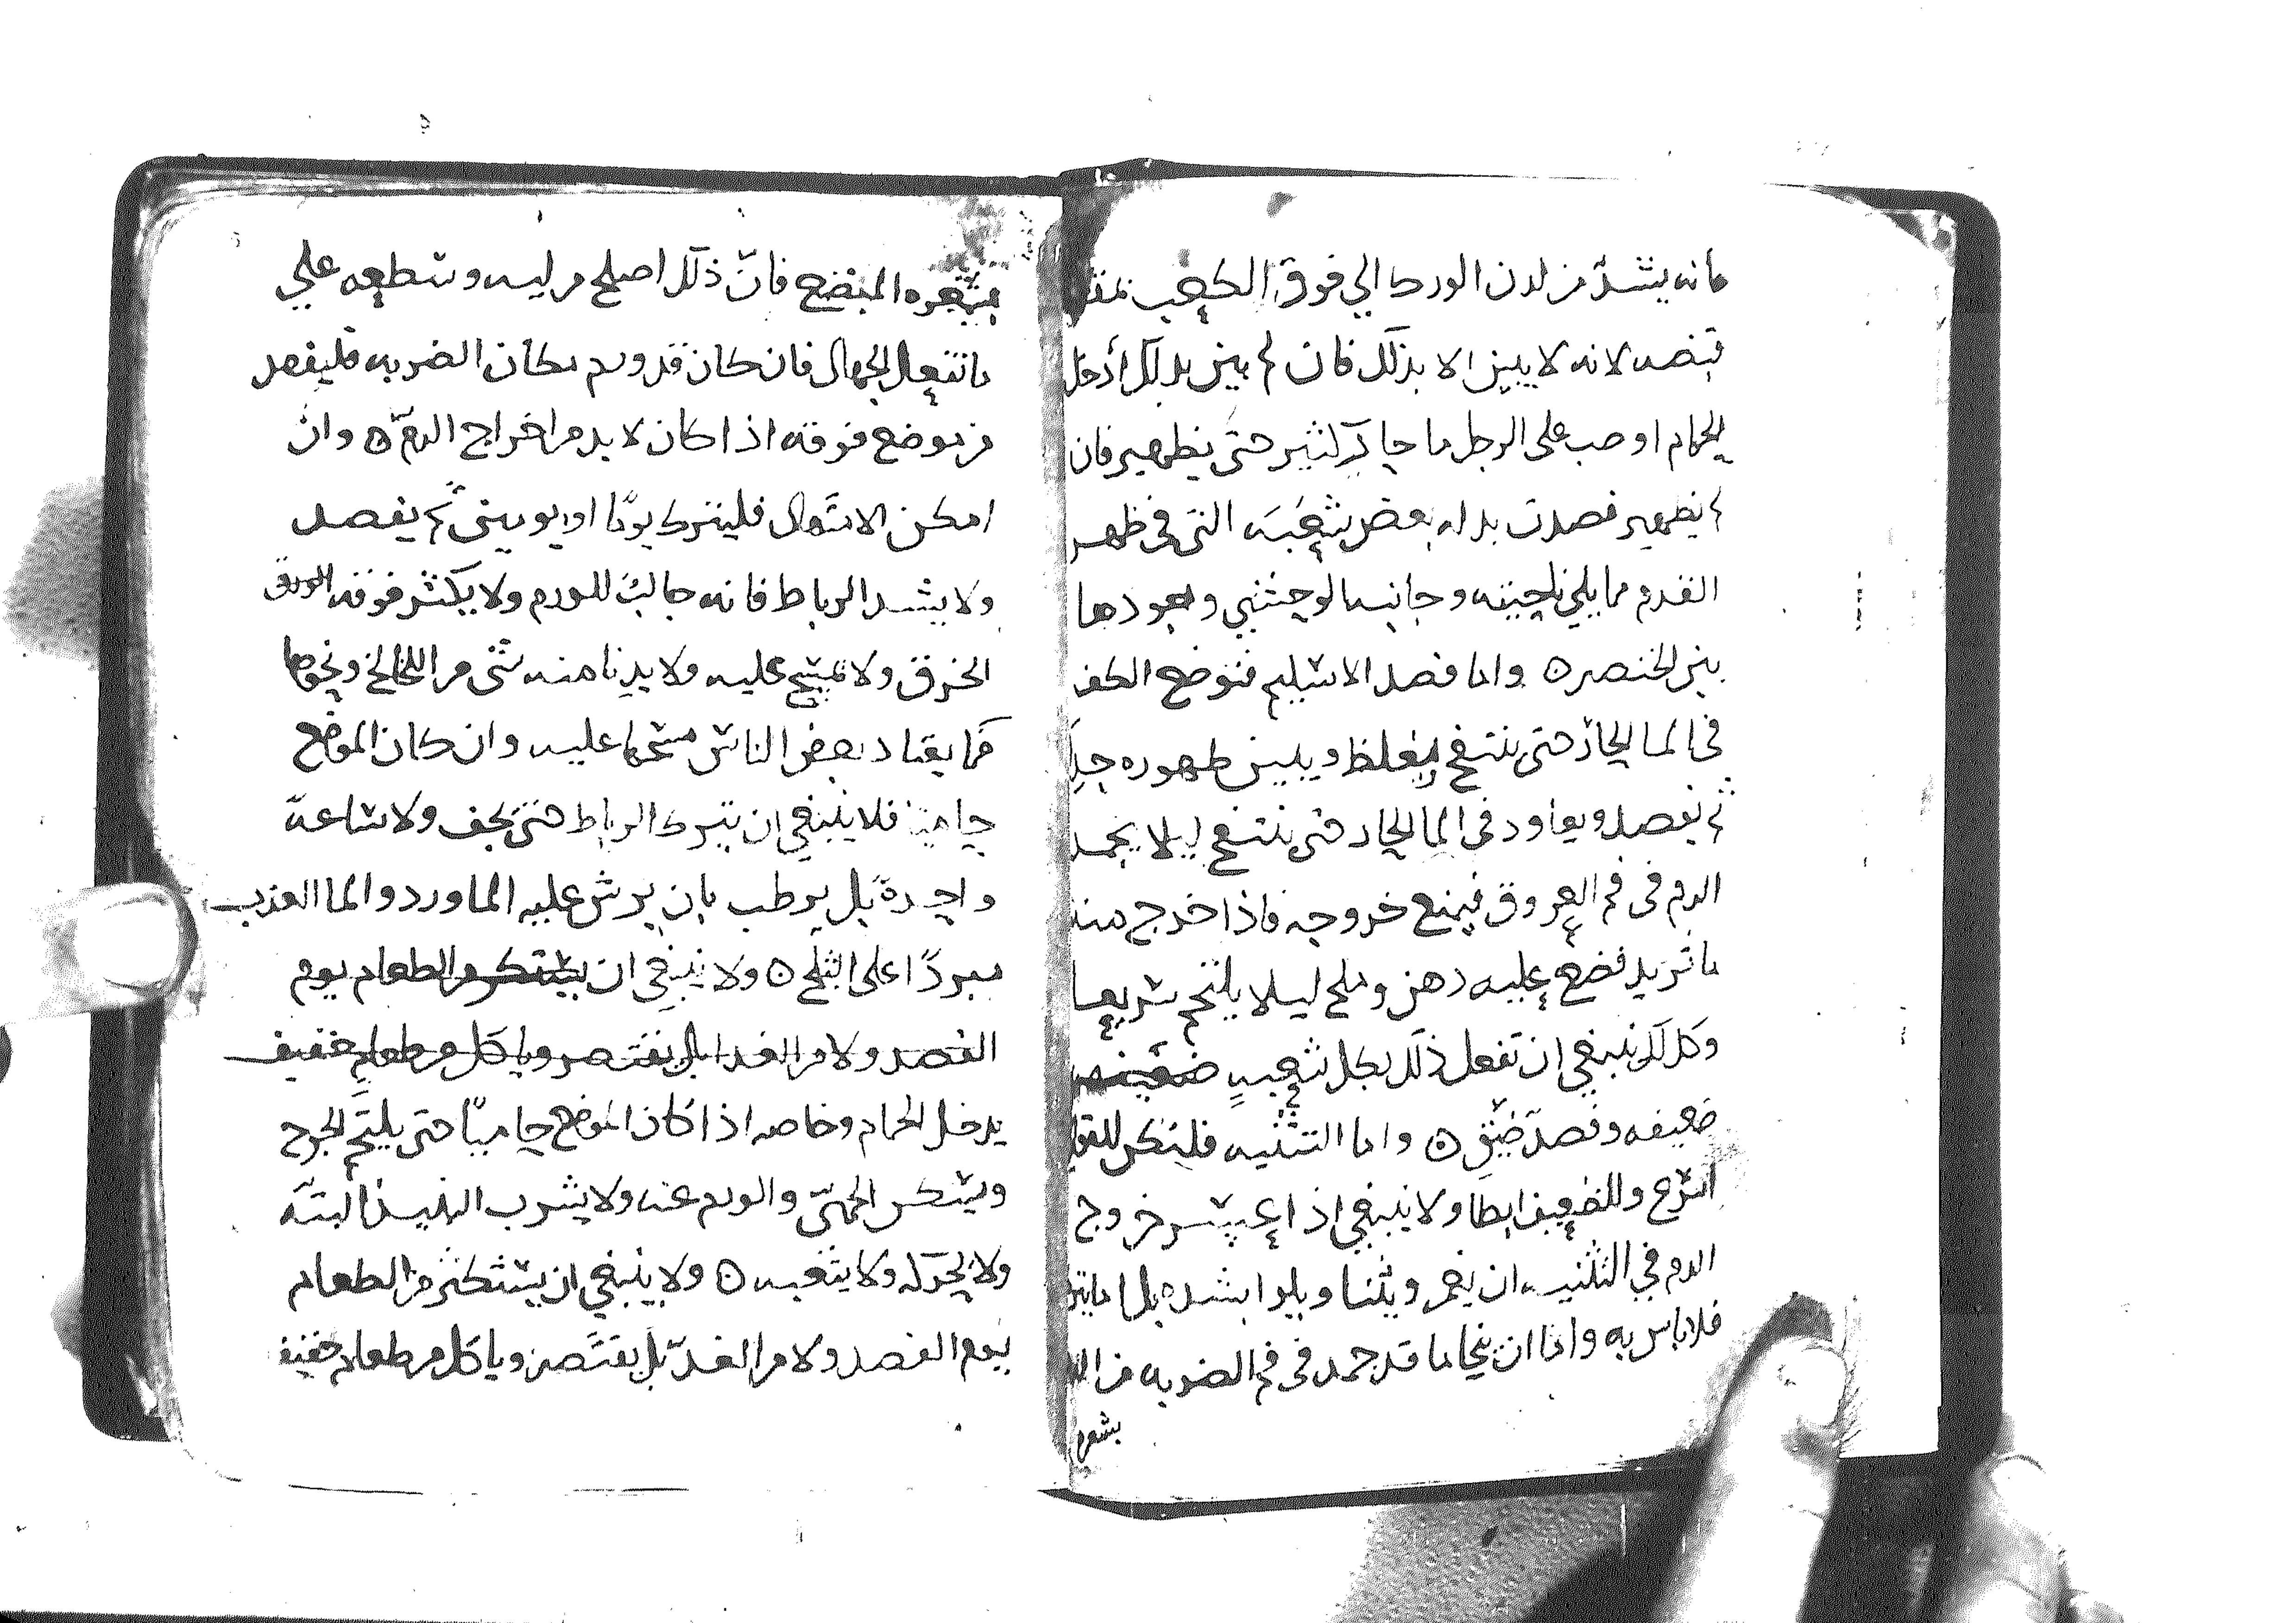 فانه يشد من لدن الورك الي فوق الكعب
قبضه لانه لا يبين الا بذلك فان لم يبين بذلك أدخل
الحمام او صب على الرجل ما حار كثير حتى يظهر فان
لم يظهر فصدت بدله بعض شعبه التى فى ظهر
القدم مما يلي ناحيته وجانبه الوحشي واجودها
بنز الخنصر ٥ واما فصد الاسيلم فتوضع الكف
فى الما الحار حتى ينتفخ ويبين ظهوره جدا
ثم يفصد ويعاود فى الما الحار حتى ينتفخ ليلا يجمد
الدم فى فم العروق فيمنع خروجه فاذا خرج منه
ما تريد فضع عليه دهن وملح ليلا يلتحم سريعا
وكذلك ينبغي ان تفعل ذلك بكل شعبه
ضعيفه وفصد ضيق ٥ واما التثنيه فلتكن للقوي
اسرع وللضعيف ابطا ولا ينبغي اذا عسر خروج
الدم في التثنيه ان يغمز ويثنا ويلوا بشده بل اما
فلا باس به واما ان ينحا ما قد جمد فى فم الضربه من
بشعره
بشعره المبضع فان ذلك اصلح من ليه وسطعه علي
ما تفعل الجهال فان كان قد ورم مكان الضربه فليفصد
من موضع فوقه اذا كان لا بد من اخراج الدم ٥ وان
امكن الامتهال فليترك يومًا او يومين ثم يفصد
ولا يشد الرباط فانه جالبٌ للورم ولا يكثر فوقه
الخرق ولا يمسح عليه ولا يدنا منه شى من اللخالخ ونحوها
كما يعتاد بعض الناس مسحها عليه وان كان الموضع
حاميًا فلا ينبغي ان يترك الرباط حتى يجف ولا ساعة
واحدة بل يرطب بان يرش عليه الماورد والما العذب
مبردًا على الثلج ٥ ولا ينبغى ان يستكثر من الطعام يوم
الفصد ولا من الغد بل يقتصر وياكل من طعام خفيف
يدخل الحمام وخاصه اذا كان الموضع حاميًا حتى يلتحم الجرح
ويسكن الحمى والورم عنه ولا يشرب النبيذ البتة
ولا الحركه ولا يتعبه ٥ ولا ينبغي ان يستكثر من الطعام
يوم الفصد ولا من الغد بل يقتصر وياكل من طعام خفيف